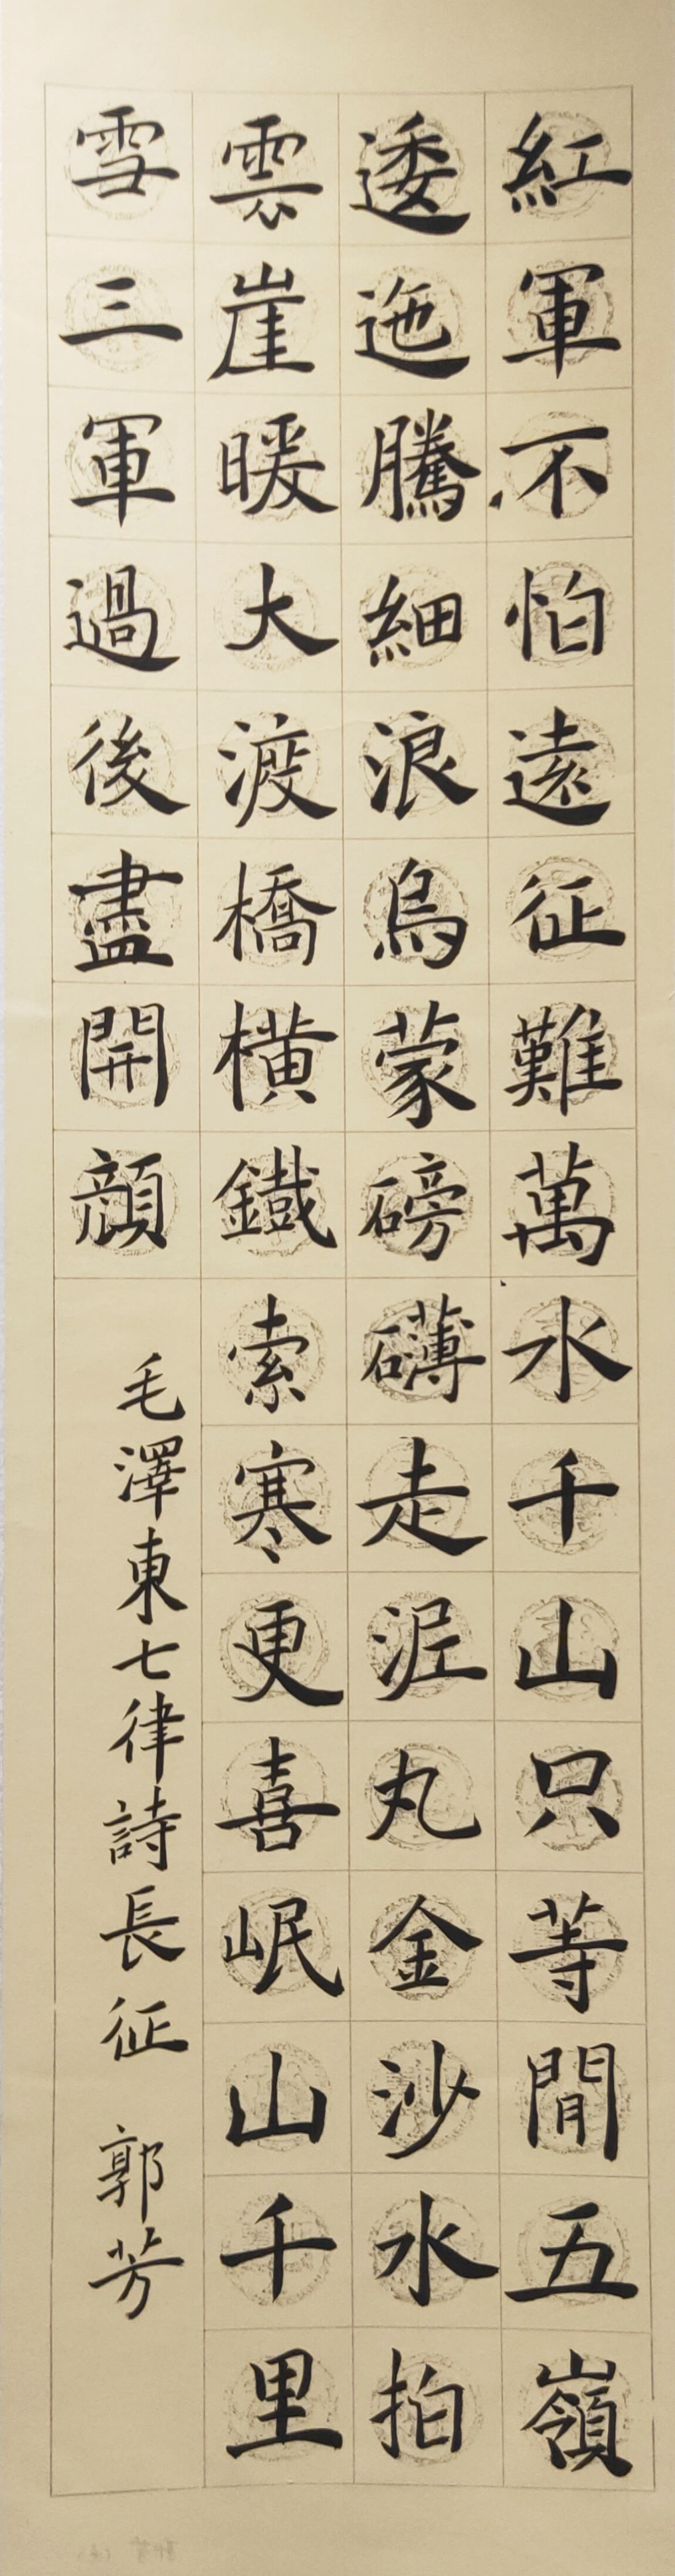 紅軍不怕遠征難萬水千山只等閒五嶺
逶迤騰細浪烏蒙磅礴走泥丸金沙水拍
雲崖暖大渡橋橫鐵索寒更喜岷山千里
雪三軍過後盡開顔
毛澤東七律詩長征 郭芳